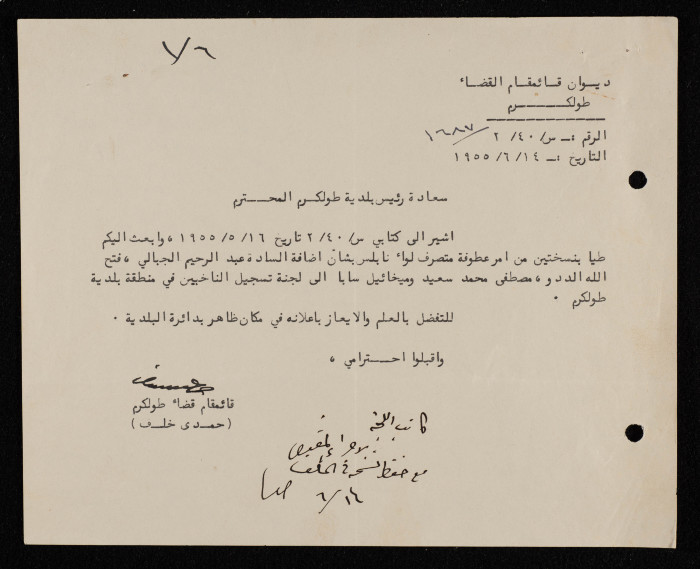 ٦/١
ديوان قائمقام القضاء
طولكرم
الرقم :ـ س/ ٤٠/ ٢ /١٦٨٧
التاريخ :ـ ١٤/ ٦/ ١٩٥٥
سعادة رئيس بلدية طولكرم المحترم
اشير الى كتابي س/ ٤٠/ ٢ تاريخ ١٦/ ٥/ ١٩٥٥ ، وابعث اليكم
طيا بنسختين من امر عطوفة متصرف لواء نابلس بشأن اضافة السادة عبد الرحيم الجبالي ، فتح
الله الددو ، مصطفى محمد سعيد وميخائيل سابا الى لجنة تسجيل الناخبين في منطقة بلدية
طولكرم .
للتفضل بالعلم والايعاز باعلانه في مكان ظاهر بدائرة البلدية .
واقبلوا احترامي ،
قائمقام قضاء طولكرم
( حمدى خلف )
كاتب اللجنة
لاجراء المقتضى
مع حفظ نسخة في الملف
١٤/ ٦